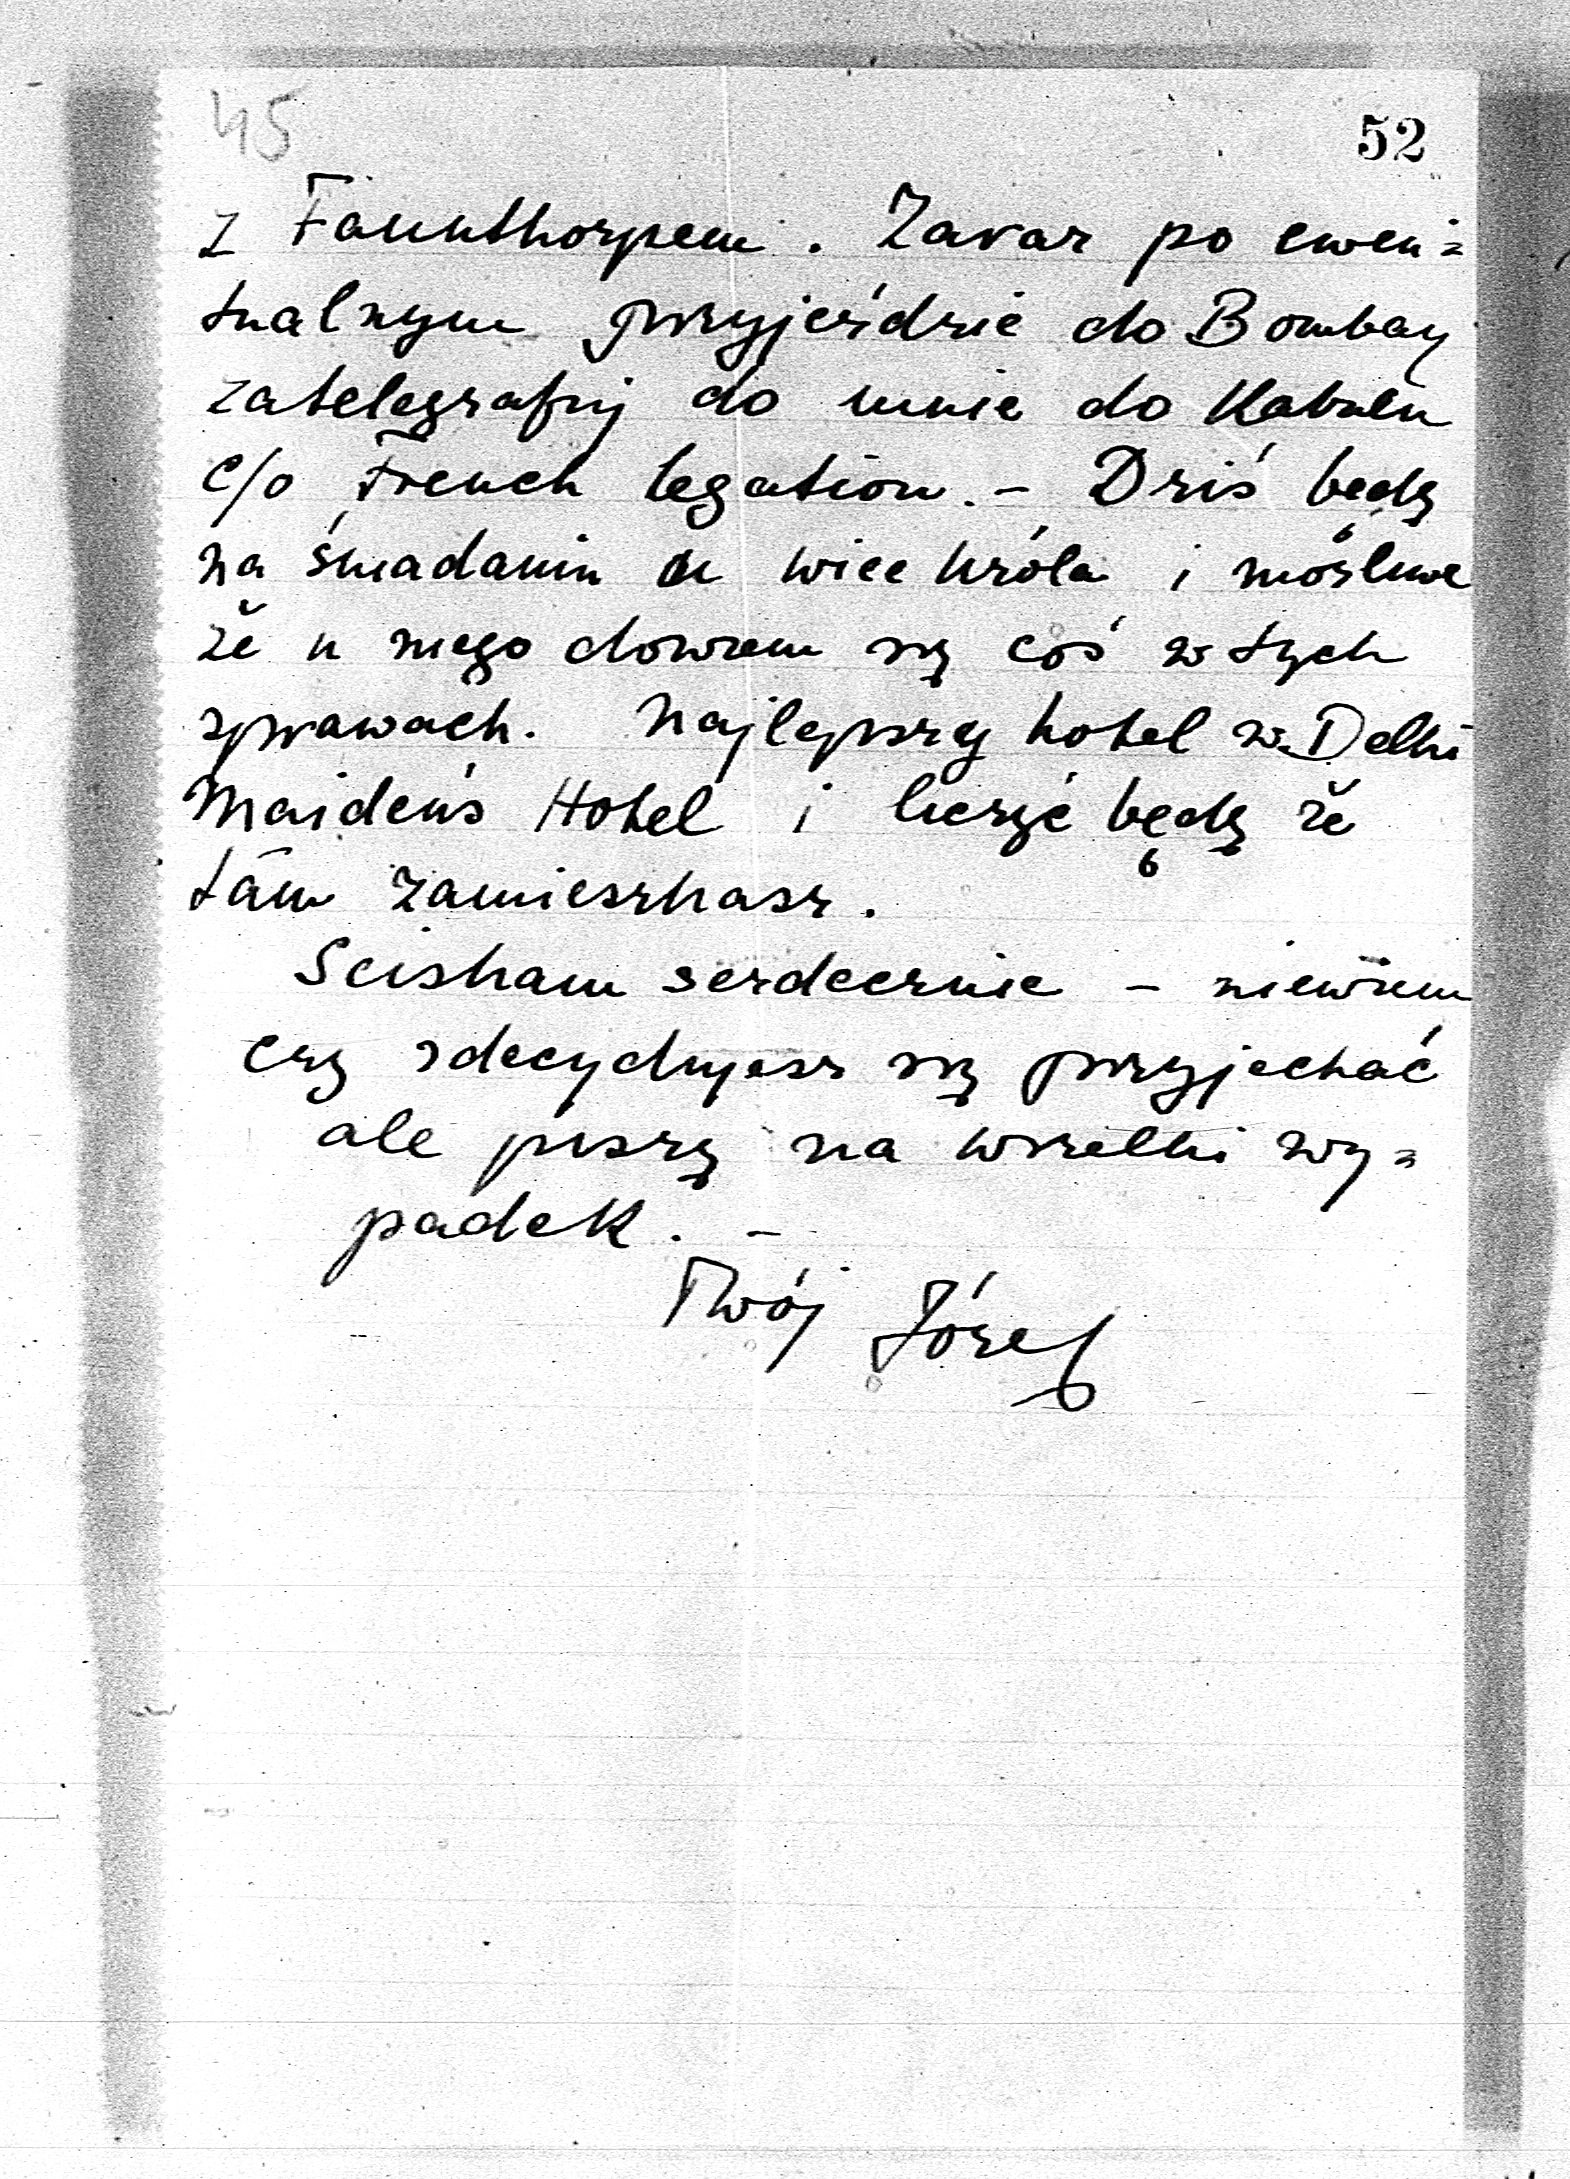 45
52
z Faunthorpem. Zaraz po ewen=
tualnym przyjeździe do Bombay
zatelegrafuj do mnie do Kabulu
c/o French legation. - Dziś będę
na śniadaniu u wice króla i możliwe
że u niego dowiem się coś w tych
sprawach. Najlepszy hotel w Delhi
Maiden's Hotel i liczyć będę że
tam zamieszkasz.
Sciskam serdecznie - niewiem
czy zdecydujesz się przyjechać
ale piszę na wszelki wy=
padek. -
Twój Józef